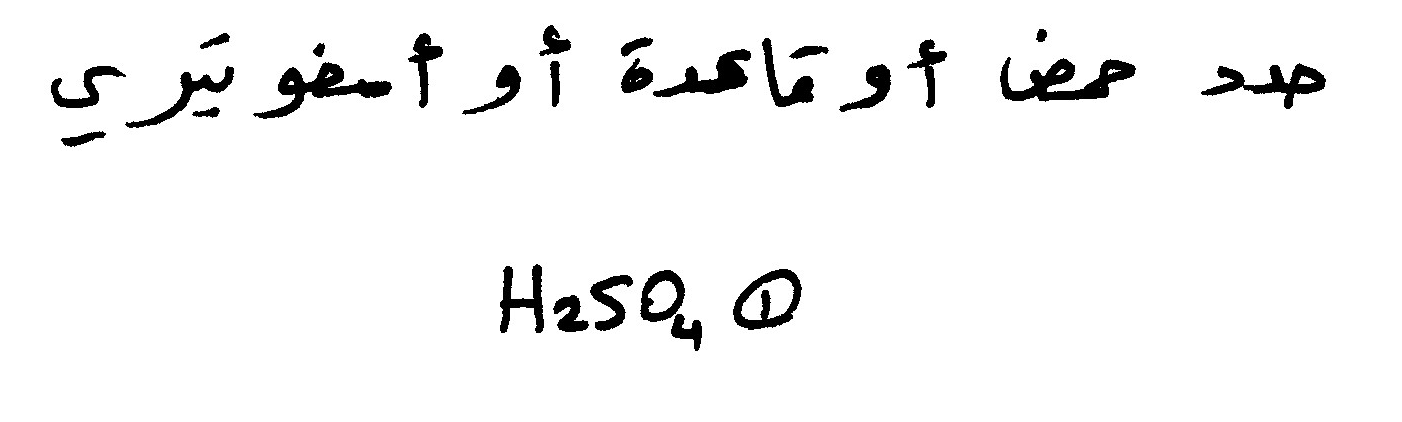 حدد حمض أو قاعدة أو أمفوتيري
① H2SO4